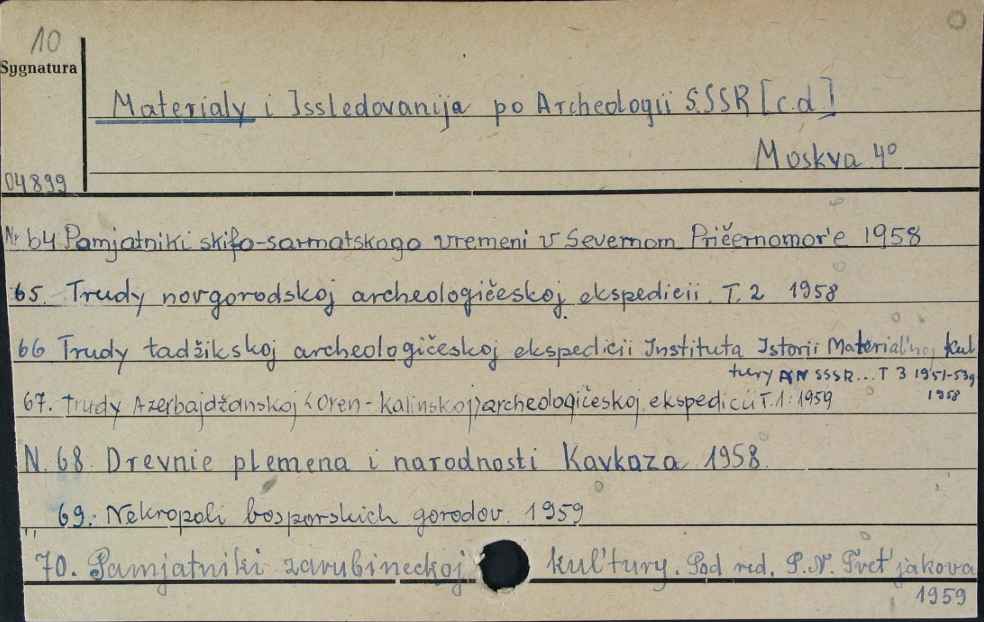 10
Sygnatura
Materialy i Issledovanija po Archeologii SSSR [c.d.]
Moskva 4°
04899
Nr 64 Pamjatniki skifo-sarmatskogo vremeni v Severnom Pričernomor'e 1958
65. Trudy novgorodskoj archeologičeskoj ekspedicii. T. 2 1958
66 Trudy tadžikskoj archeologičeskoj ekspedicii Instituta Istorii Material'noj Kul
tury AN SSSR... T 3 1951-53g
1958
67. Trudy Azerbajdžanskoj (Oren-Kalinskoj) archeologičeskoj ekspedicii T. 1: 1959
N. 68. Drevnie plemena i narodnosti Kavkaza 1958.
69. Nekropoli bosporskich gorodov. 1959
70. Pamjatniki zarubineckoj kul'tury. Pod red. P. N. Tret'jakova
1959